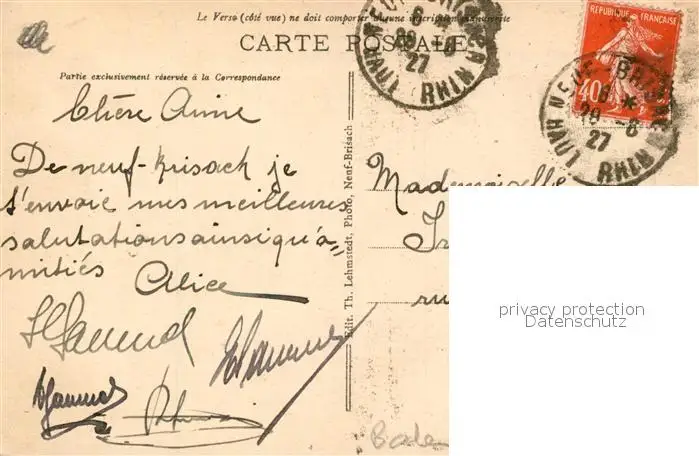 Le Verso (côté vue) ne doit comporter aucune inscription manuscrite
CARTE POSTALE
Partie exclusivement réservée à la Correspondance
RÉPUBLIQUE FRANÇAISE
40c
NEUF-BRISACH
28-6
27
HAUT RHIN
NEUF-BRISACH
6 *
28-6
27
HAUT RHIN
Chère Anne
De neuf-Brisach je
t'envoie mes meilleures
salutations ainsi qu'a
mitiés Alice
Edit. Th. Lehmstedt, Photo, Neuf-Brisach
Mademoiselle
ru
privacy protection
Datenschutz
Bade